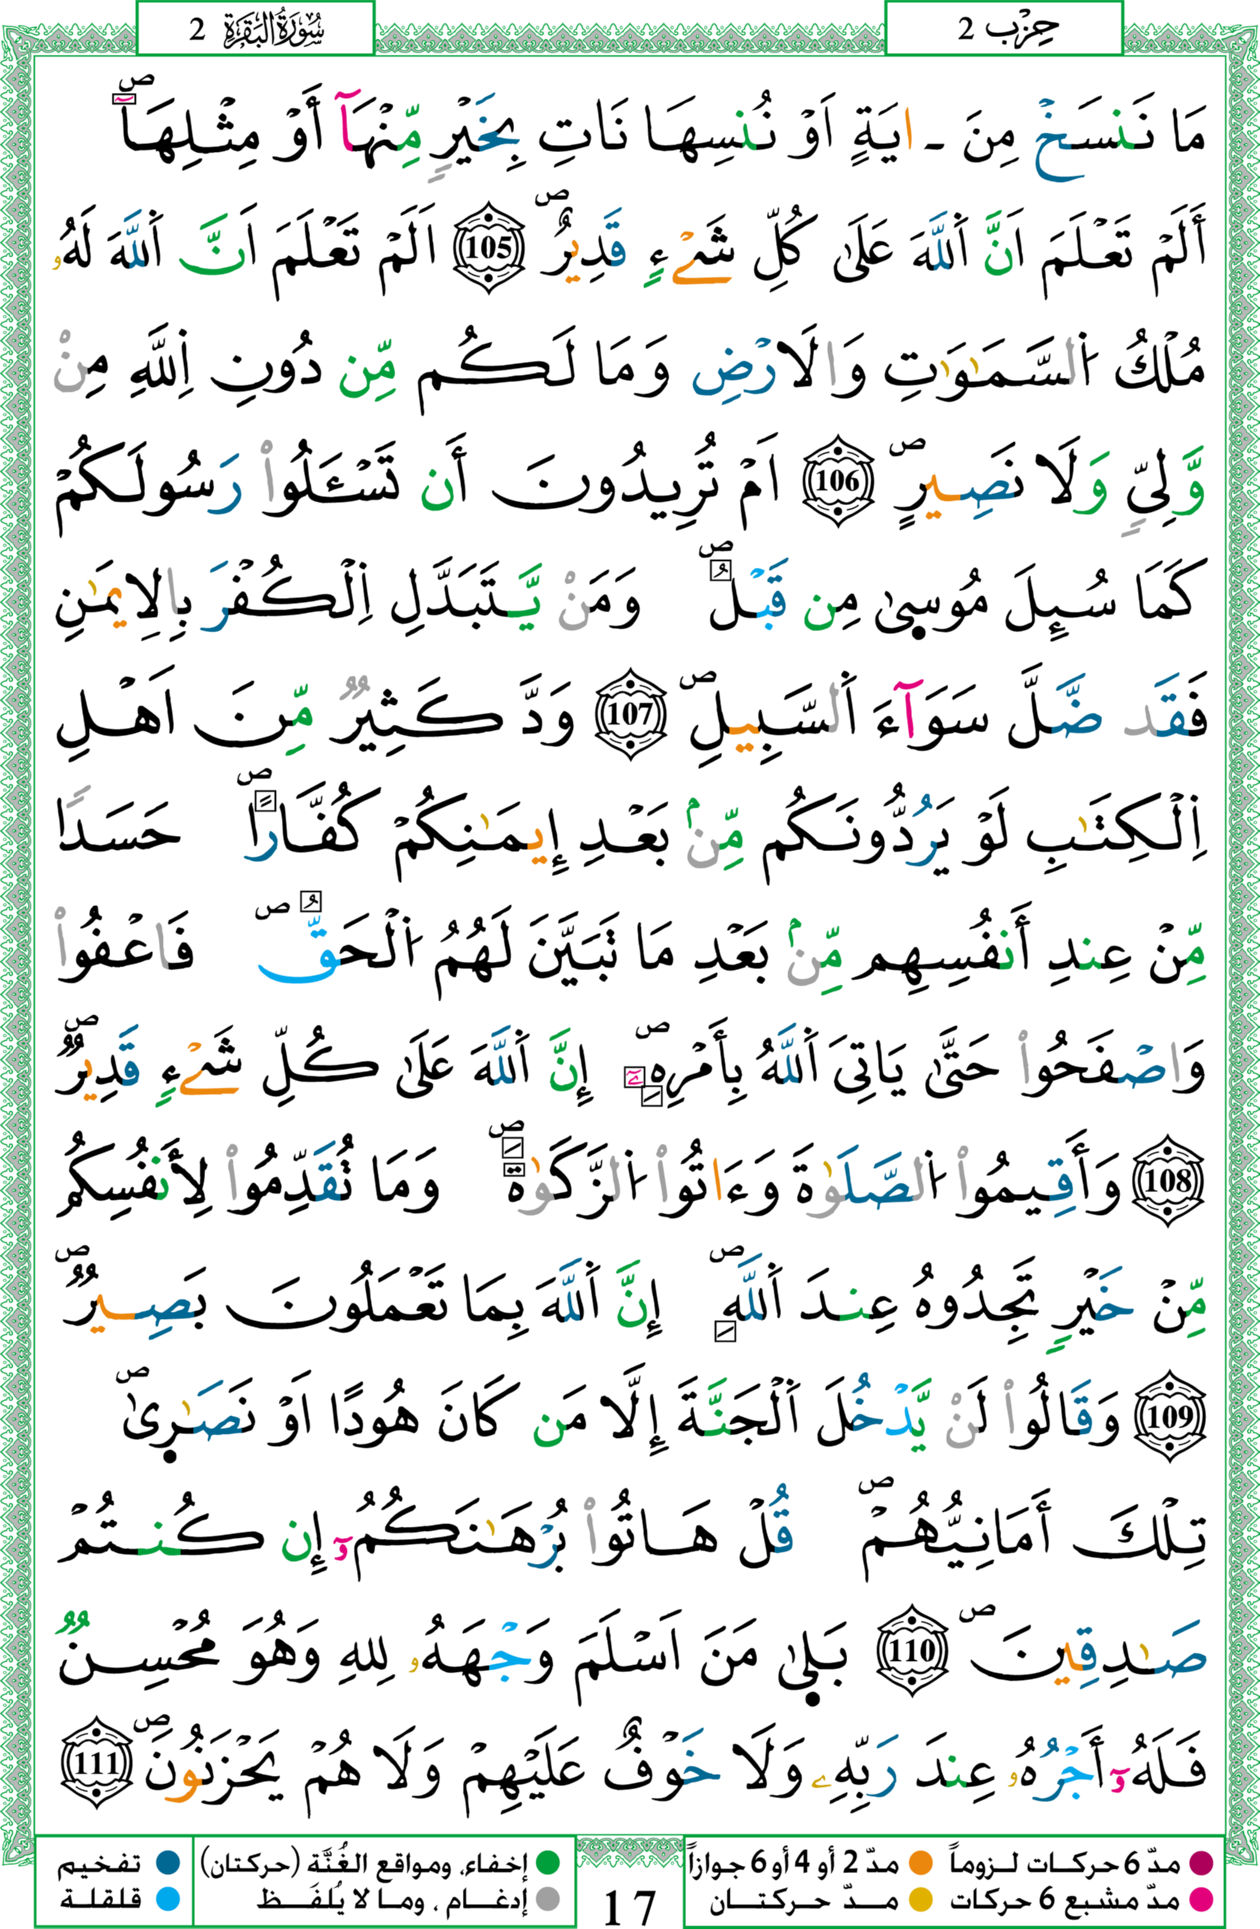 سُورَةُ البَقَرَةِ 2
حِزْب 2
مَا نَنسَخْ مِنَ ـ ايَةٍ اَوْ نُنسِهَا نَاتِ بِخَيْرٍ مِّنْهَآ أَوْ مِثْلِهَآ ۖ
أَلَمْ تَعْلَمَ اَنَّ اَ۬للَّهَ عَلَىٰ كُلِّ شَےْءٍ قَدِيرٌ ۖ 105 اَلَمْ تَعْلَمَ اَنَّ اَ۬للَّهَ لَهُۥ
مُلْكُ اُ۬لسَّمَٰوَٰتِ وَالَارْضِ وَمَا لَكُم مِّن دُونِ اِ۬للَّهِ مِنْ
وَّلِيٍّ وَلَا نَصِيرٍ ۖ 106 اَمْ تُرِيدُونَ أَن تَسْـَٔلُواْ رَسُولَكُمْ
كَمَا سُئِلَ مُوس۪ىٰ مِن قَبْلُ ۖ وَمَنْ يَّتَبَدَّلِ اِ۬لْكُفْرَ بِالِايمَٰنِ
فَقَد ضَّلَّ سَوَآءَ اَ۬لسَّبِيلِ ۖ 107 وَدَّ كَثِيرٌ مِّنَ اَهْلِ
اِ۬لْكِتَٰبِ لَوْ يَرُدُّونَكُم مِّنۢ بَعْدِ إِيمَٰنِكُمْ كُفَّاراً ۖ حَسَدًا
مِّنْ عِندِ أَنفُسِهِم مِّنۢ بَعْدِ مَا تَبَيَّنَ لَهُمُ اُ۬لْحَقُّ ۖ فَاعْفُواْ
وَاصْفَحُواْ حَتَّىٰ يَاتِىَ اَ۬للَّهُ بِأَمْرِهِۦٓ ۖ إِنَّ اَ۬للَّهَ عَلَىٰ كُلِّ شَےْءٍ قَدِيرٌ ۖ
108 وَأَقِيمُواْ اُ۬لصَّلَوٰةَ وَءَاتُواْ اُ۬لزَّكَوٰةَ ۖ وَمَا تُقَدِّمُواْ لِأَنفُسِكُم
مِّنْ خَيْرٍ تَجِدُوهُ عِندَ اَ۬للَّهِ ۖ إِنَّ اَ۬للَّهَ بِمَا تَعْمَلُونَ بَصِيرٌ ۖ
109 وَقَالُواْ لَنْ يَّدْخُلَ اَ۬لْجَنَّةَ إِلَّا مَن كَانَ هُودًا اَوْ نَصَٰر۪ىٰ ۖ
تِلْكَ أَمَانِيُّهُمْ ۖ قُلْ هَاتُواْ بُرْهَٰنَكُمُۥٓ إِن كُنتُمْ
صَٰدِقِينَ ۖ 110 بَل۪ىٰ مَنَ اَسْلَمَ وَجْهَهُۥ لِلهِ وَهُوَ مُحْسِنٌ
فَلَهُۥٓ أَجْرُهُۥ عِندَ رَبِّهِۦ وَلَا خَوْفٌ عَلَيْهِمْ وَلَا هُمْ يَحْزَنُونَ ۖ 111
مدّ 6 حركات لـزوماً مدّ 2 أو 4 أو 6 جوازاً
مدّ مشبع 6 حركات مـدّ حـركتـان
17
إخفاء، ومواقع الغُنَّة (حركتان) تفخيم
إدغـام ، ومـا لا يُلفَـظ قلقلة